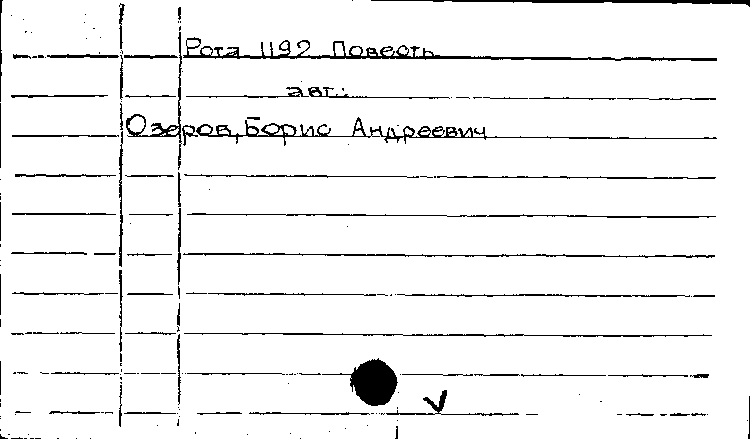 Рота 1192 Повесть
авт.:
Озеров, Борис Андреевич
V